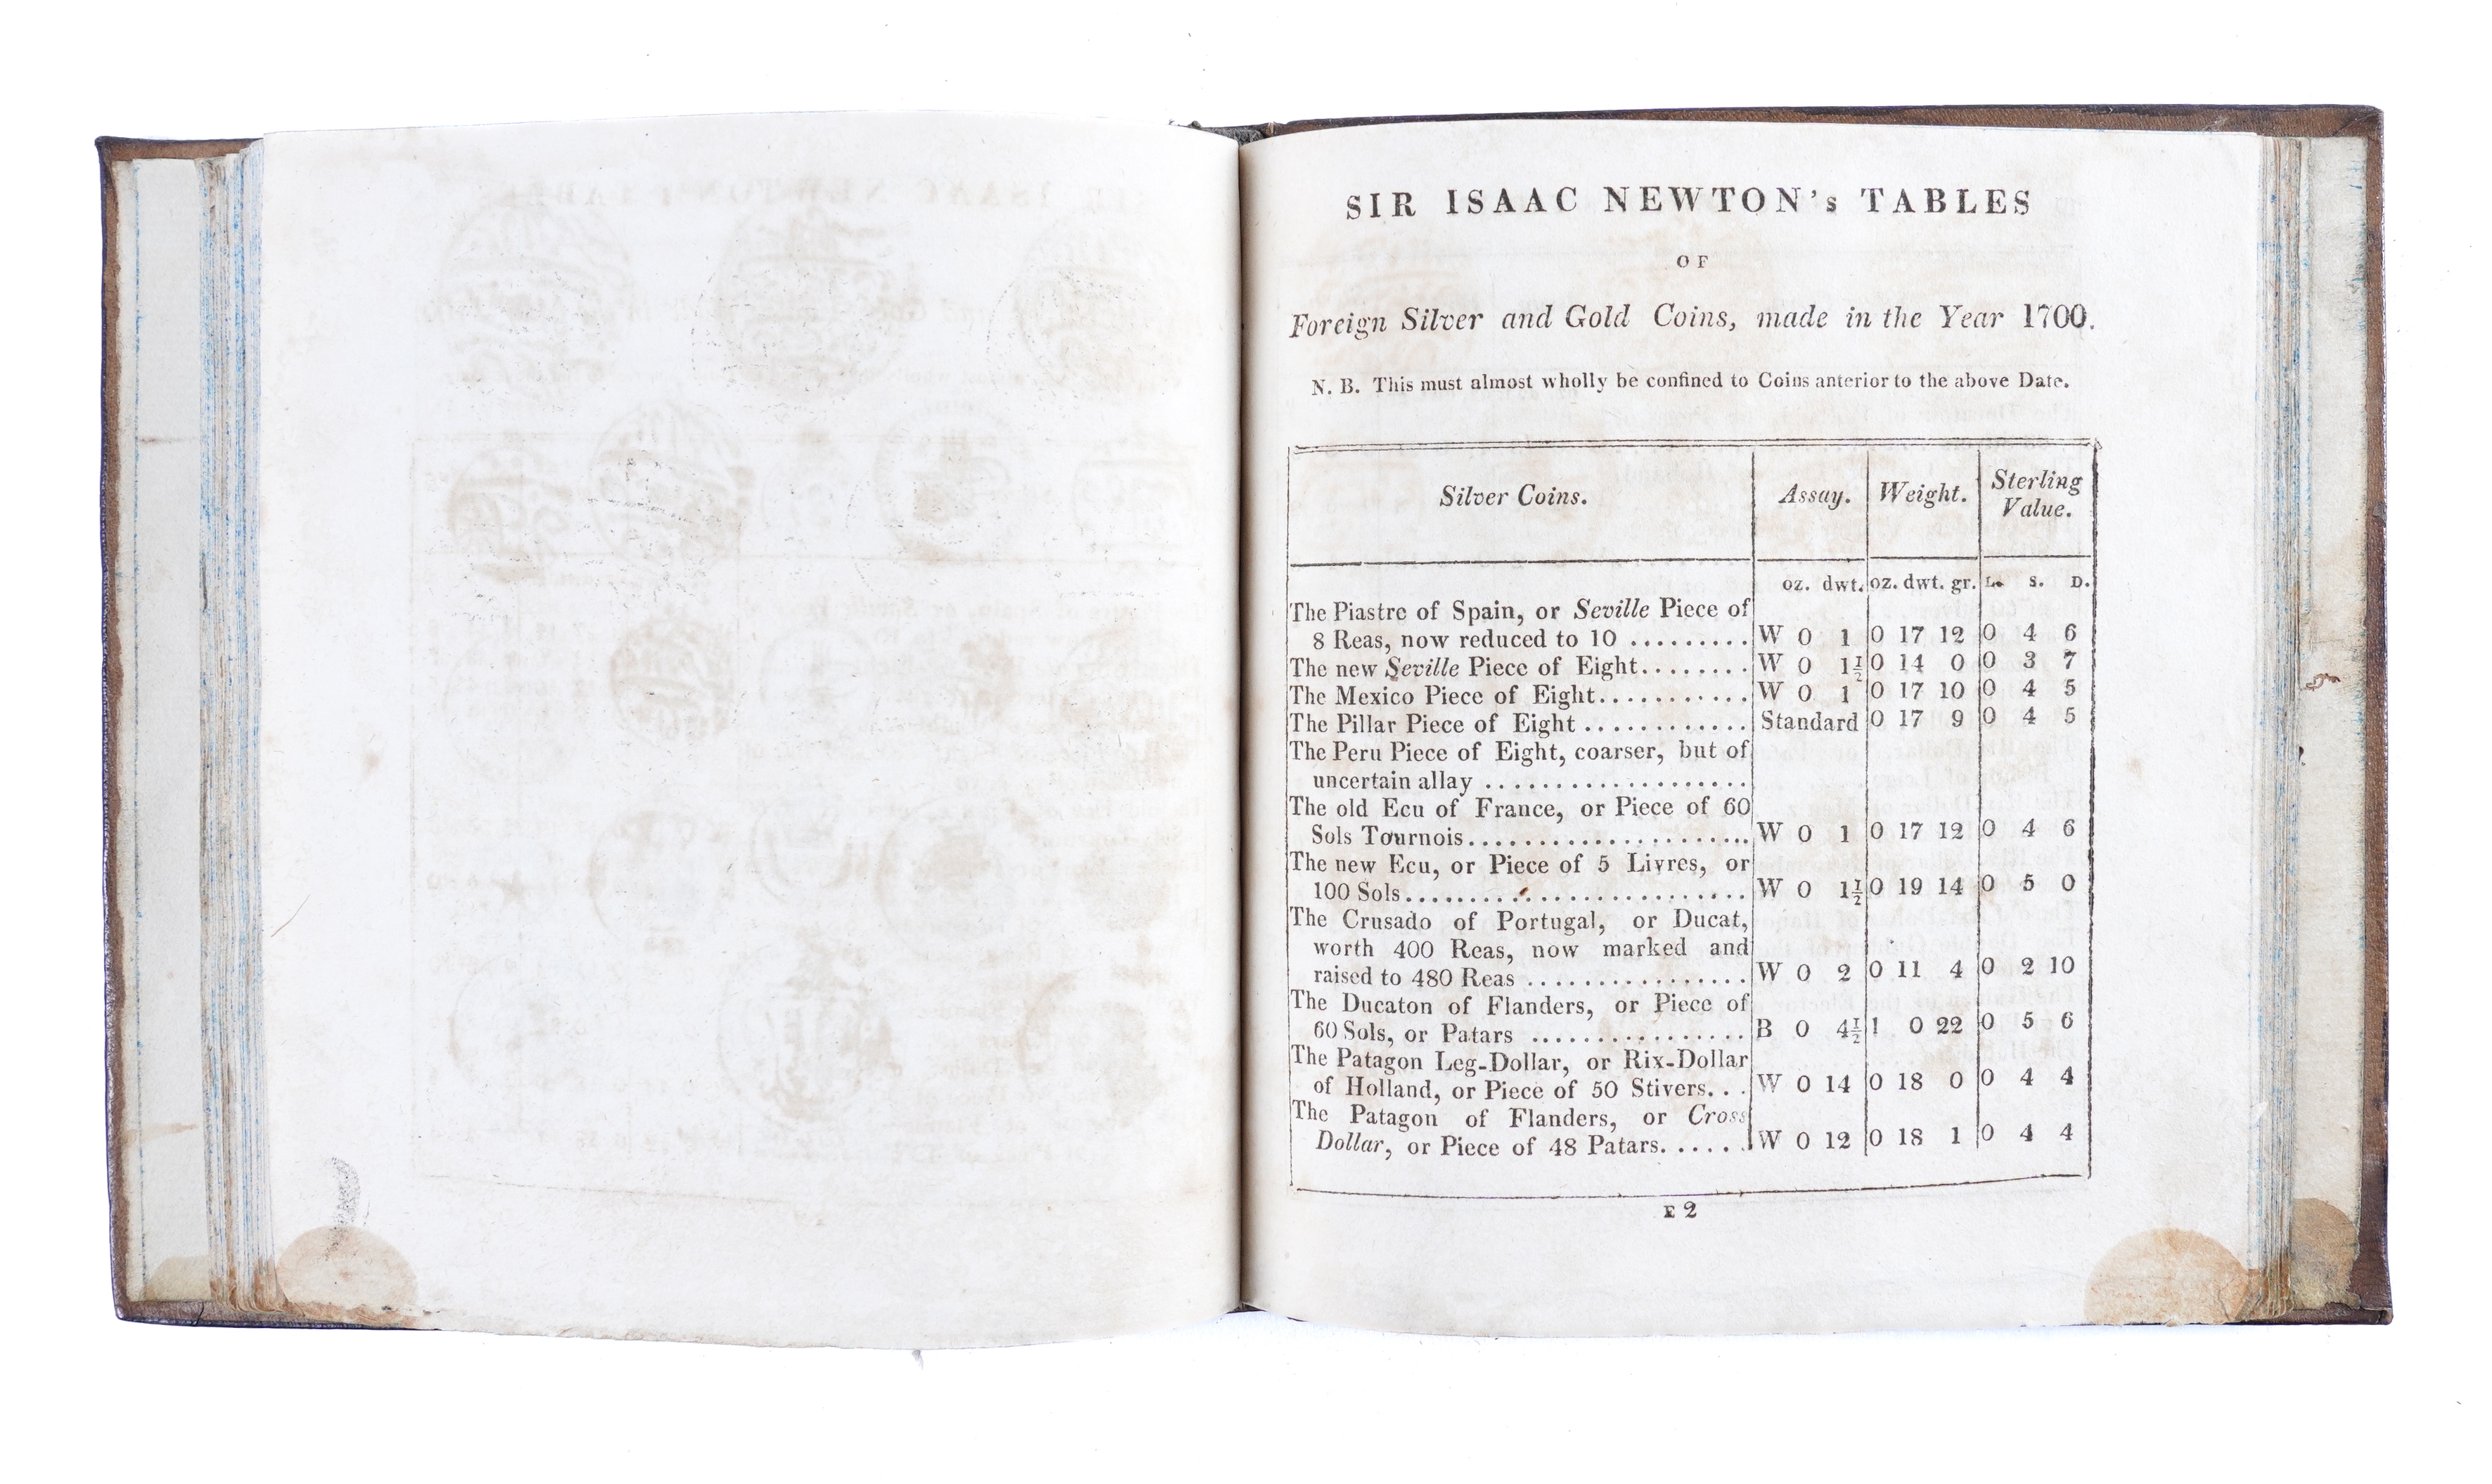 SIR ISAAC NEWTON's TABLES
OF
Foreign Silver and Gold Coins, made in the Year 1700.
N. B. This must almost wholly be confined to Coins anterior to the above Date.
Silver Coins. Assay. Weight. Sterling Value.
oz. dwt. oz. dwt. gr. L. S. D.
The Piastre of Spain, or Seville Piece of
8 Reas, now reduced to 10 ......... W 0 1 0 17 12 0 4 6
The new Seville Piece of Eight........ W 0 1½ 0 14 0 0 3 7
The Mexico Piece of Eight........... W 0 1 0 17 10 0 4 5
The Pillar Piece of Eight ............ Standard 0 17 9 0 4 5
The Peru Piece of Eight, coarser, but of
uncertain allay ...................
The old Ecu of France, or Piece of 60
Sols Tournois..................... W 0 1 0 17 12 0 4 6
The new Ecu, or Piece of 5 Livres, or
100 Sols.......................... W 0 1½ 0 19 14 0 5 0
The Crusado of Portugal, or Ducat,
worth 400 Reas, now marked and
raised to 480 Reas ................. W 0 2 0 11 4 0 2 10
The Ducaton of Flanders, or Piece of
60 Sols, or Patars ................ B 0 4½ 1 0 22 0 5 6
The Patagon Leg-Dollar, or Rix-Dollar
of Holland, or Piece of 50 Stivers... W 0 14 0 18 0 0 4 4
The Patagon of Flanders, or Cross
Dollar, or Piece of 48 Patars...... W 0 12 0 18 1 0 4 4
E 2